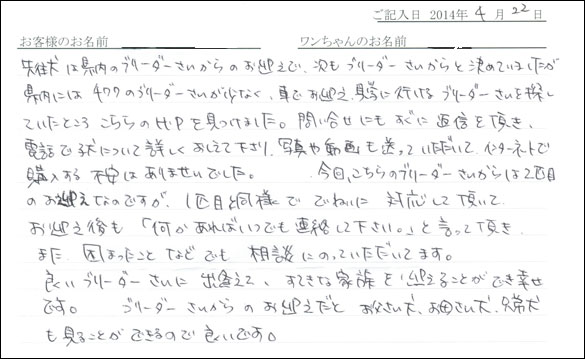 ご記入日 2014年 4 月 22 日
お客様のお名前 ワンちゃんのお名前
先住犬は県内のブリーダーさんからのお迎えで、次もブリーダーさんからと決めていましたが
県内には のブリーダーさんが少なく、車でお迎え、見学に行けるブリーダーさんを探し
ていたところ こちらのHPを見つけました。問い合せにもすぐに返信を頂き、
電話で子犬について詳しくおしえて下さり、写真や動画も送っていただいて、インターネットで
購入する不安はありませんでした。 今回、こちらのブリーダーさんからは2匹目
のお迎えなのですが、1匹目と同様で ていねいに 対応して頂いて
お迎え後も「何かあればいつでも連絡して下さい。」と言って頂き
また 困まったことなどでも 相談にのっていただいてます。
良いブリーダーさんに出逢えて、すてきな家族を迎えることができ幸せ
です。 ブリーダーさんからのお迎えだと お父さん犬、お母さん犬、兄弟犬
も見ることができるので良いです。